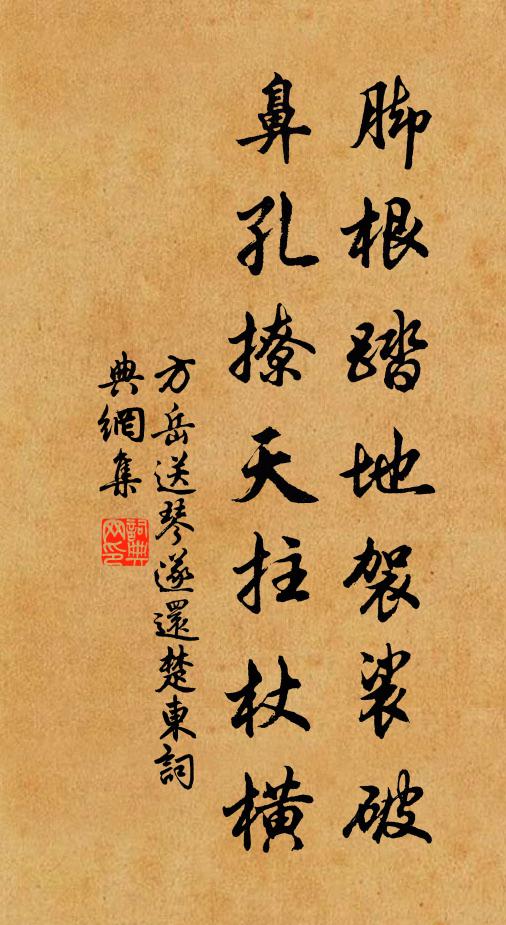 脚根踏地袈裟破
鼻孔撩天拄杖橫
方岳送琴遂還楚東詞
典網集
詞典網印